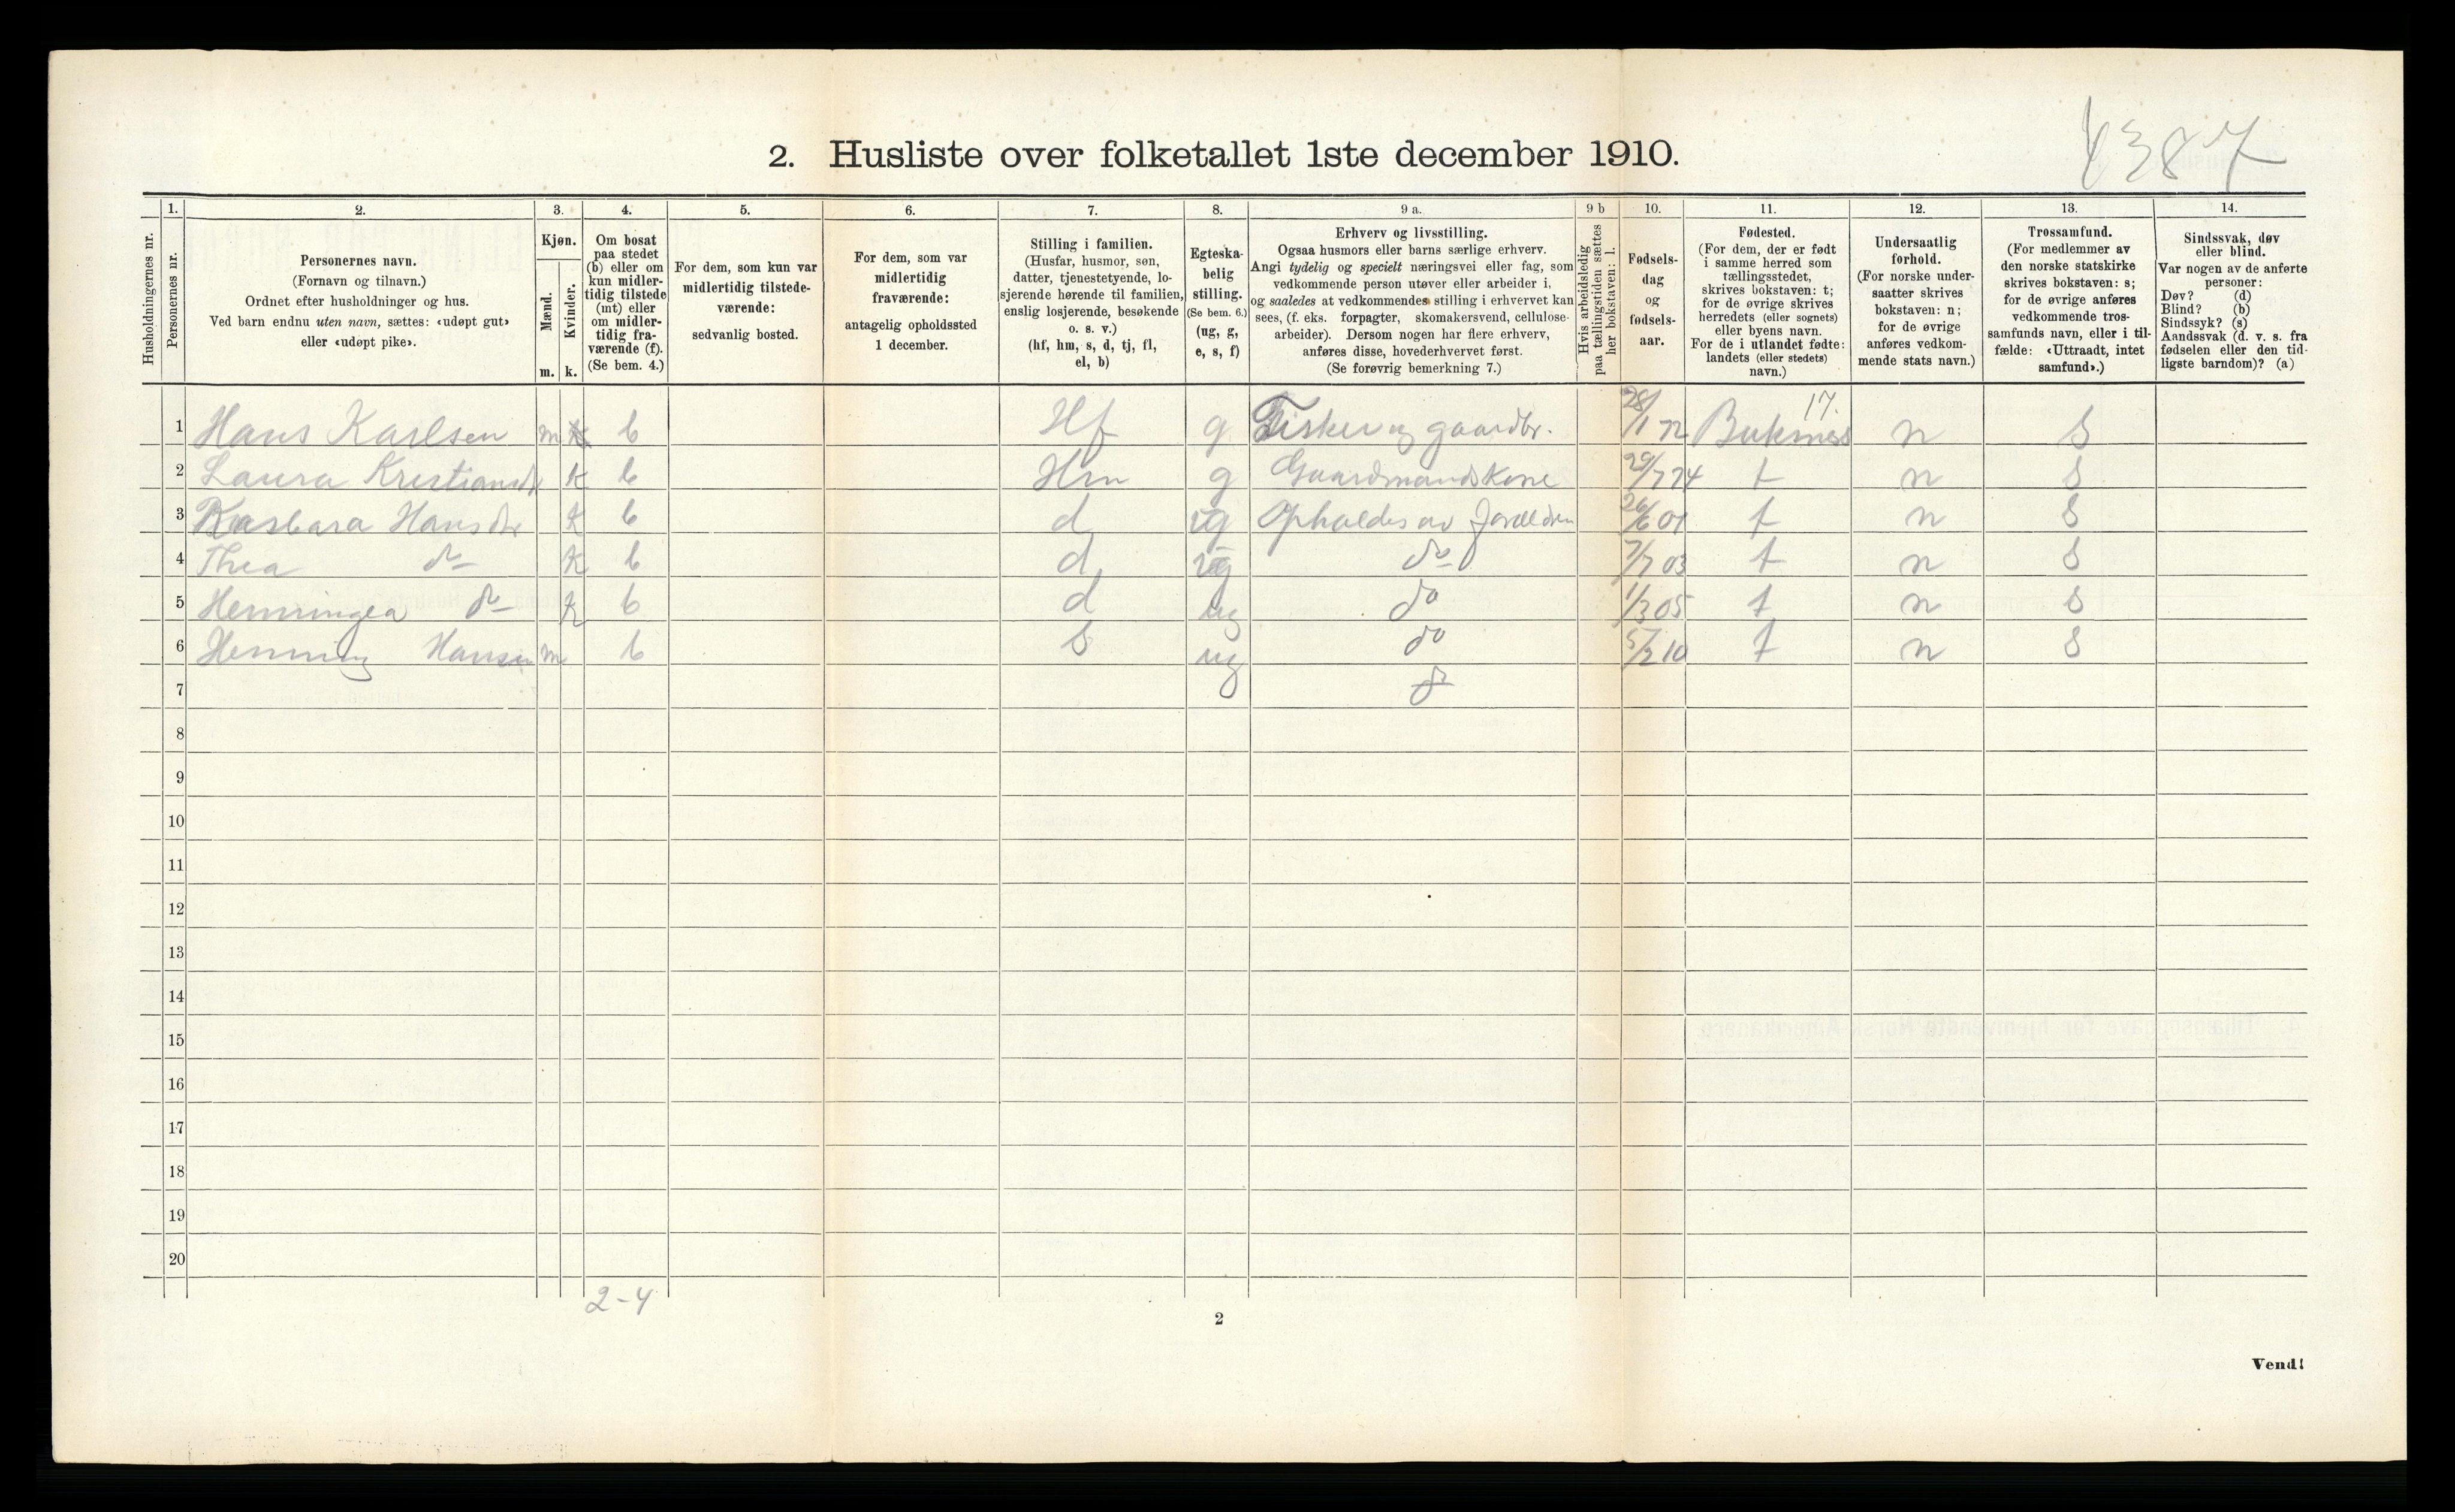 2. Husliste over folketallet 1ste december 1910.
Husholdningernes nr.
1.
Personernes nr.
2.
Personernes navn.
(Fornavn og tilnavn.)
Ordnet efter husholdninger og hus.
Ved barn endnu uten navn, sættes: «udøpt gut»
eller «udøpt pike».
3.
Kjøn.
Mænd.
Kvinder.
m. k.
4.
Om bosat
paa stedet
(b) eller om
kun midler-
tidig tilstede
(mt) eller
om midler-
tidig fra-
værende (f).
(Se bem. 4.)
5.
For dem, som kun var
midlertidig tilstede-
værende:
sedvanlig bosted.
6.
For dem, som var
midlertidig
fraværende:
antagelig opholdssted
1 december.
7.
Stilling i familien.
(Husfar, husmor, søn,
datter, tjenestetyende, lo-
sjerende hørende til familien,
enslig losjerende, besøkende
o. s. v.)
(hf, hm, s, d, tj, fl,
el, b)
8.
Egteska-
belig
stilling.
(Se bem. 6.)
(ug, g,
e, s, f)
9 a.
Erhverv og livsstilling.
Ogsaa husmors eller barns særlige erhverv.
Angi tydelig og specielt næringsvei eller fag, som
vedkommende person utøver eller arbeider i,
og saaledes at vedkommendes stilling i erhvervet kan
sees, (f. eks. forpagter, skomakersvend, cellulose-
arbeider). Dersom nogen har flere erhverv,
anføres disse, hovederhvervet først.
(Se forøvrig bemerkning 7.)
9 b
Hvis arbeidsledig
paa tællingstiden sættes
her bokstaven: l.
10.
Fødsels-
dag
og
fødsels-
aar.
11.
Fødested.
(For dem, der er født
i samme herred som
tællingsstedet,
skrives bokstaven: t;
for de øvrige skrives
herredets (eller sognets)
eller byens navn.
For de i utlandet fødte:
landets (eller stedets)
navn.)
12.
Undersaatlig
forhold.
(For norske under-
saatter skrives
bokstaven: n;
for de øvrige
anføres vedkom-
mende stats navn.)
13.
Trossamfund.
(For medlemmer av
den norske statskirke
skrives bokstaven: s;
for de øvrige anføres
vedkommende tros-
samfunds navn, eller i til-
fælde: «Uttraadt, intet
samfund».)
14.
Sindssvak, døv
eller blind.
Var nogen av de anførte
personer:
Døv? (d)
Blind? (b)
Sindssyk? (s)
Aandssvak (d. v. s. fra
fødselen eller den tid-
ligste barndom)? (a)
17.
1 Hans Karlsen m k b Hf g Fisker og gaardbr. 28/1 72 Buksnes n S
2 Laura Kristiansdr k b Hm g Gaardmandskone 29/7 74 t n S
3 Barbara Hansdtr k b d ug Opholdes av forældren 26/6 01 t n S
4 Thea do k b d ug do 7/7 03 t n S
5 Henningea do k b d ug do 1/3 05 t n S
6 Henning Hansen m b S ug do 5/2 10 t n S
7
8
9
10
11
12
13
14
15
16
17
18
19
20
2-4
2
Vend!